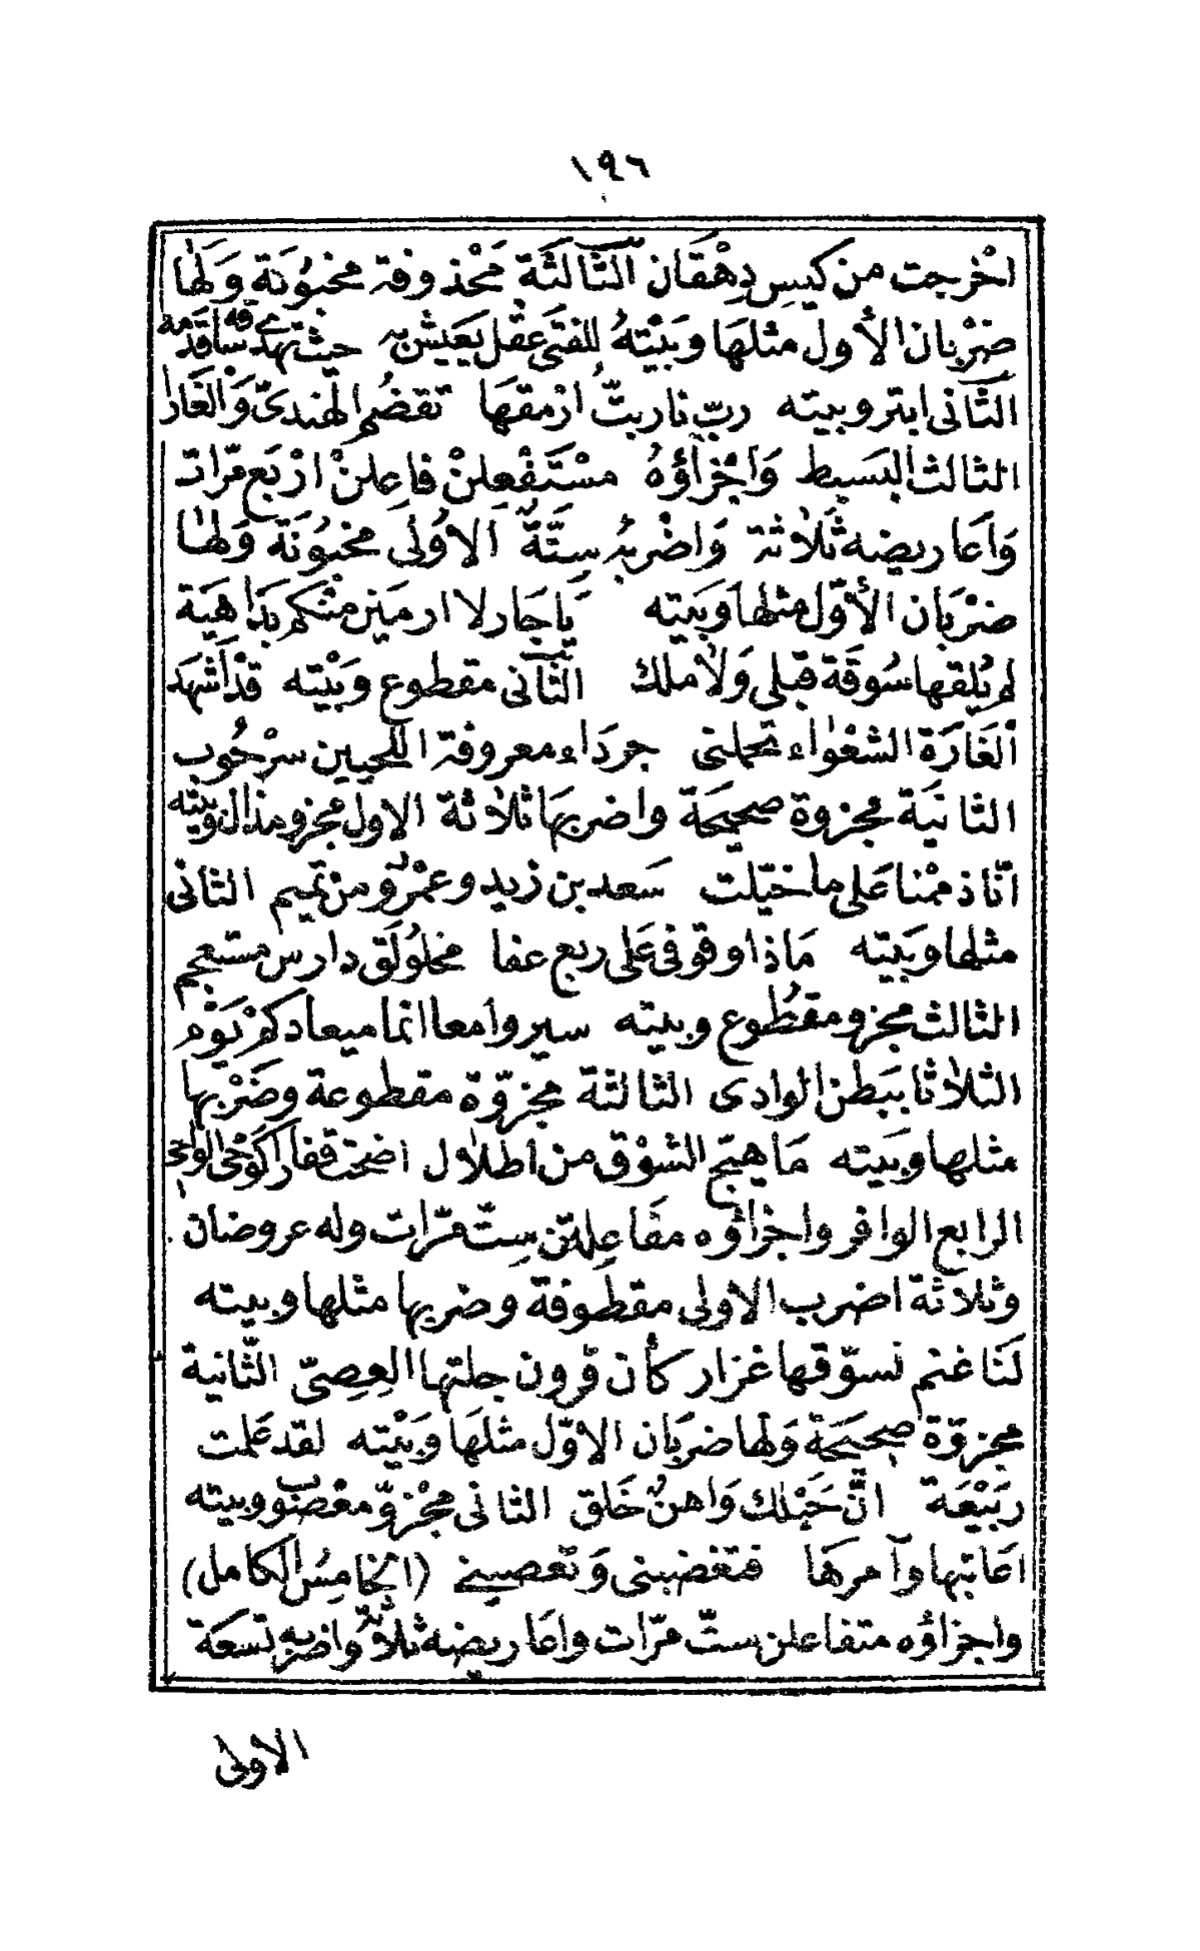 ١٩٦
اخْرجت من كيسِ دِهْقَان الثَّالثَة مَحْذوفة مخبوُنَة وَلهٰا
ضرْبان الأول مثلهَا وبَيْتهُ للفتَى عَقْل يَعَيش بهِ حيث تهدى ساقَه قدمه
الثَّانى ابتر وبيته ربّ نار بتُّ ارْمقهَا تقضُم الهندىّ وَالْغَارا
الثالث البَسيط وَاجْزاؤُهُ مسْتَفْعِلنْ فاعِلنْ ارْبَع مَرّات
وَاَعَاريضه ثَلاثة وَاضْربُه سِتَّةٌ اَلاوُلى مخبُونَة وَلهٰا
ضرْبَان الأوّل مثلهَا وَبَيته يَاحَار لا ارمَين منْكم بدَاهيَة
لم يَلقهَا سُوقَة قبْلى وَلاَ ملك الثَّانى مقطوع وبَيْته قدْ اَشهَد
اْلغَارَة الشعْوَاء تحملنى جردَاء معروفة اللحيين سرْحُوب
الثانيَة مجزوة صحيحَة واضربهَا ثلاثة الاول مجزو مذال وبيته
انّا ذممْنا عَلى ما خيّلت سَعد بن زيد وعمْرٌو من تميم الثانى
مثلها وبَيته مَاذا وقوفى عَلى ربع عفا مخلوُلَق دارس مستعجم
الثالث مجزو مقطُوع وبيته سيروا معا انما ميعادكمْ يَوْم
الثلاثا ببَطن الوادى الثالثة مجزوّة مقطوعة وضَرْبها
مثلها وبَيته مَا هيّج الشوْق من اَطلاَل اضحَت قفارا كوَحْى الوَاحى
الرابع الوافر واجْزاؤه مفَاعِلتن سِتّ مَرّات وله عروضان
وثلاثة اضرب الاولى مقطوفة وضربها مثلها وبيته
لَنَا غنم نسوّقها غزار كأن قرون جلتها العِصِىّ الثَّانية
مجزوّة صحيحَة وَلهَا ضربَان الاوّل مثلهَا وبَيْته لقد عَلمت
ربَيْعَة اَنَّ حَبْلك وَاهنٌ خَلق الثانى مجْزوّ معْصُوب وبيته
اعَاتبها وآمرهَا فتغضبنى وَتعصينى (الخامِس الكامل)
واجزاؤه متفاعلن ستّ مرّات واعَاريضه ثلاثٌ واضربه تسعَة
الاولى